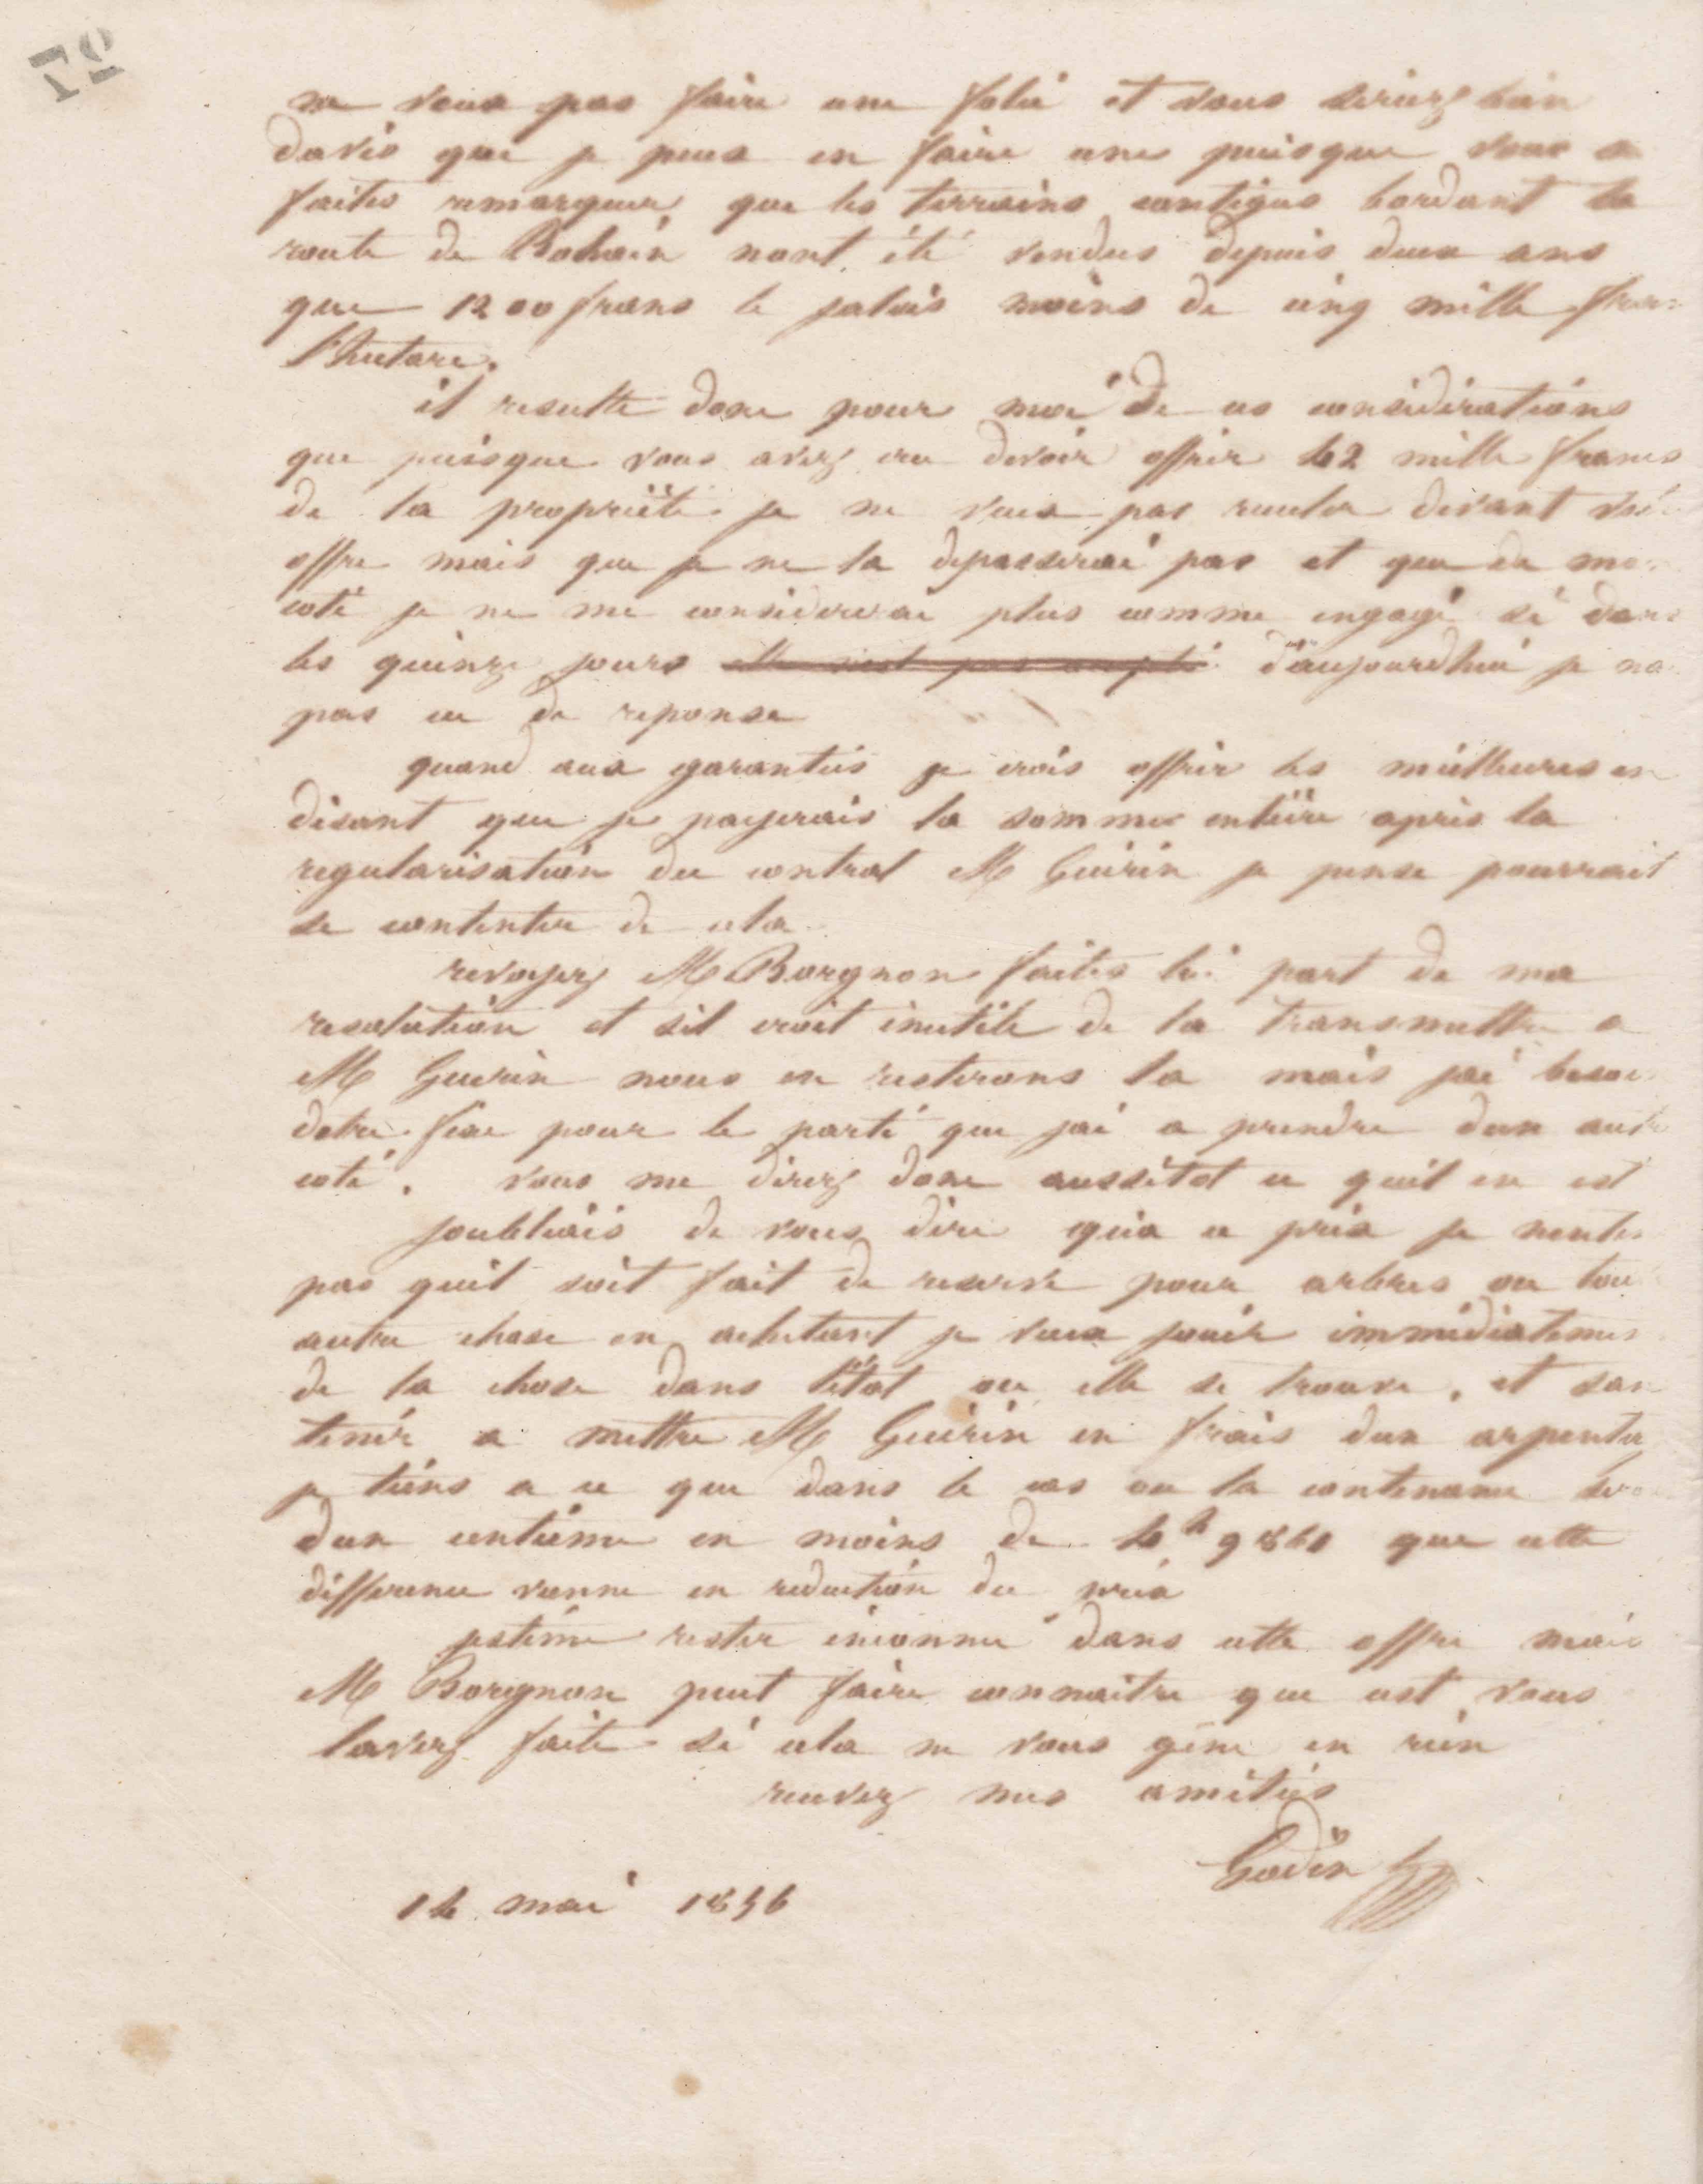 72
ne veux pas faire une folie et vous seriez bien
davis que je peux en faire une puisque vous
faites remarquer que les terrains contigus bordant la
route de Bohain nont été vendus depuis deux ans
que 1200 frans le jalois moins de cinq mille
lhectare.
il resulte donc pour moi de ces considérations
que puisque vous avez cru devoir offrir 42 mille francs
de la propriété je ne veux pas reculer devant
offre mais que je ne la depasserai pas et que de
coté je ne me considererai plus comme engagé si dans
les quinze jours elle nest pas accepté daujourdhui je
pas eu de reponse
quand aux garanties je crois offrir les meilleures en
disant que je payerais la somme entière après la
regularisation du contrat M Guérin je pense pourrait
se contenter de cela
revoyez M Borgnon faites lui part de ma
resolution et sil croit inutile de la transmettre a
M Guerin nous en resterons la mais jai
detre fixe pour le parti que jai a prendre dun
coté. vous me direz donc aussitot ce quil en est
joubliais de vous dire qua ce prix je
pas quil soit fait de reserve pour arbres ou
autre chose en achetant je veux jouir
de la chose dans létat ou elle se trouve, et
tenir a mettre M Guérin en frais dun
je tiens a ce que dans le cas ou la contenance
dun centième en moins de 4h 9860 que cette
difference vienne en reduction du prix
jestime rester inconnu dans cette offre mais
M Borgnon peut faire connaitre que cest vous
lavez faite si cela ne vous gène en rien
recevez mes amitiés
Godin
14 mai 1856